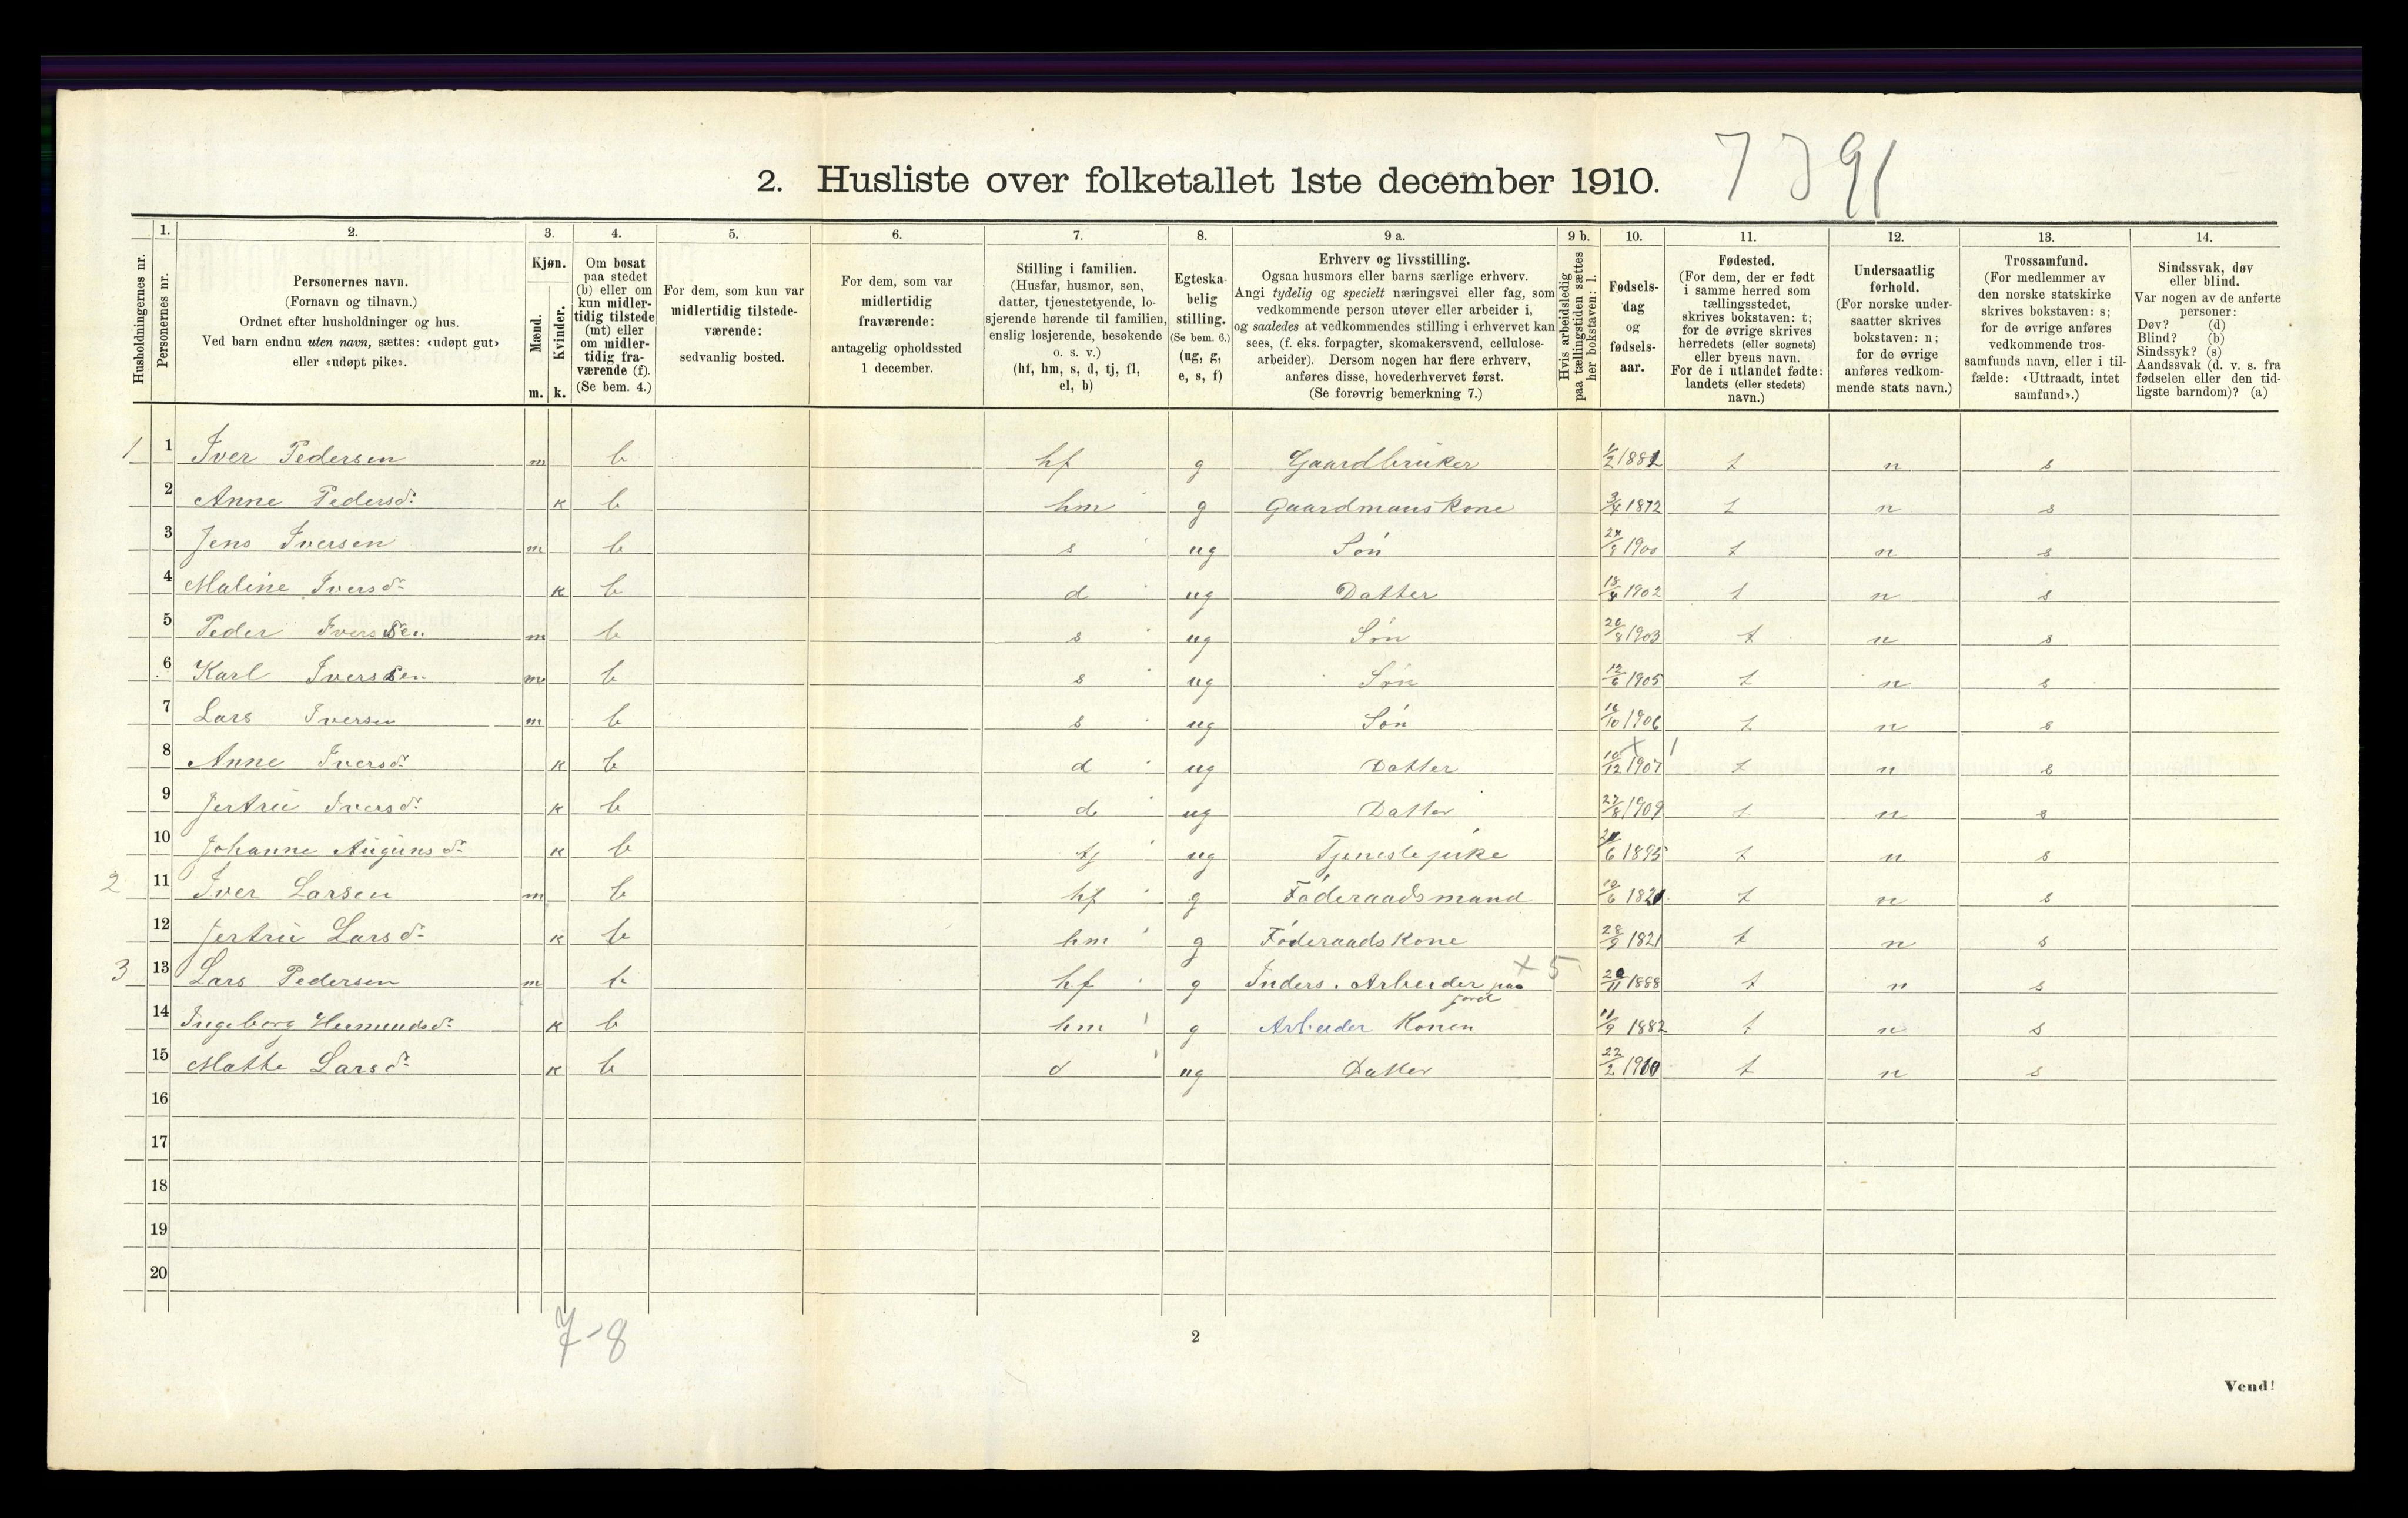 2. Husliste over folketallet 1ste december 1910. 7 91
1. 2. 3. 4. 5. 6. 7. 8. 9 a. 9 b. 10. 11. 12. 13. 14.
Husholdningernes nr.
Personernes nr.
Personernes navn.
(Fornavn og tilnavn.)
Ordnet efter husholdninger og hus.
Ved barn endnu uten navn, sættes: «udøpt gut»
eller «udøpt pike».
Kjøn.
Mænd.
Kvinder.
m. k.
Om bosat
paa stedet
(b) eller om
kun midler-
tidig tilstede
(mt) eller
om midler-
tidig fra-
værende (f).
(Se bem. 4.)
For dem, som kun var
midlertidig tilstede-
værende:
sedvanlig bosted.
For dem, som var
midlertidig
fraværende:
antagelig opholdssted
1 december.
Stilling i familien.
(Husfar, husmor, søn,
datter, tjenestetyende, lo-
sjerende hørende til familien,
enslig losjerende, besøkende
o. s. v.)
(hf, hm, s, d, tj, fl,
el, b)
Egteska-
belig
stilling.
(Se bem. 6.)
(ug, g,
e, s, f)
Erhverv og livsstilling.
Ogsaa husmors eller barns særlige erhverv.
Angi tydelig og specielt næringsvei eller fag, som
vedkommende person utøver eller arbeider i,
og saaledes at vedkommendes stilling i erhvervet kan
sees, (f. eks. forpagter, skomakersvend, cellulose-
arbeider). Dersom nogen har flere erhverv,
anføres disse, hovederhvervet først.
(Se forøvrig bemerkning 7.)
Hvis arbeidsledig
paa tællingstiden sættes
her bokstaven: l.
Fødsels-
dag
og
fødsels-
aar.
Fødested.
(For dem, der er født
i samme herred som
tællingsstedet,
skrives bokstaven: t;
for de øvrige skrives
herredets (eller sognets)
eller byens navn.
For de i utlandet fødte:
landets (eller stedets)
navn.)
Undersaatlig
forhold.
(For norske under-
saatter skrives
bokstaven: n;
for de øvrige
anføres vedkom-
mende stats navn.)
Trossamfund.
(For medlemmer av
den norske statskirke
skrives bokstaven: s;
for de øvrige anføres
vedkommende tros-
samfunds navn, eller i til-
fælde: «Uttraadt, intet
samfund».)
Sindssvak, døv
eller blind.
Var nogen av de anførte
personer:
Døv? (d)
Blind? (b)
Sindssyk? (s)
Aandssvak (d. v. s. fra
fødselen eller den tid-
ligste barndom)? (a)
1 1 Iver Pedersen m b hf g Gaardbruker 1/2 1882 t n s
2 Anne Pedersdr k b hm g Gaardmanskone 3/4 1872 t n s
3 Jens Iversen m b s ug Søn 1900 t n s
4 Maline Iversdr k b d ug Datter 18/4 1902 t n s
5 Peder Iversen m b s ug Søn 26/8 1903 t n s
6 Karl Iversen m b s ug Søn 12/6 1905 t n s
7 Lars Iversen m b s ug Søn 16/10 1906 t n s
8 Anne Iversdr k b d ug Datter 10/12 1907 t n s
9 Jertrü Iversdr k b d ug Datter 27/8 1909 t n s
10 Johanne Augunsdr k b tj ug Tjenestepike 1895 t n s
2 11 Iver Larsen m b hf g Føderaadsmand 12/6 1820 t n s
12 Jertrü Larsdr k b hm g Føderaadskone 28/9 1821 t n s
3 13 Lars Pedersen m b hf g Inders. Arbeider paa x 5 20/11 1888 t n s
jord
14 Ingeborg Hermundsdr k b hm g Arbeider Konen 11/9 1882 t n s
15 Mathe Larsdr k b d ug Datter 22/2 1910 t n s
16
17
18
19
20
7-8
2
Vend!